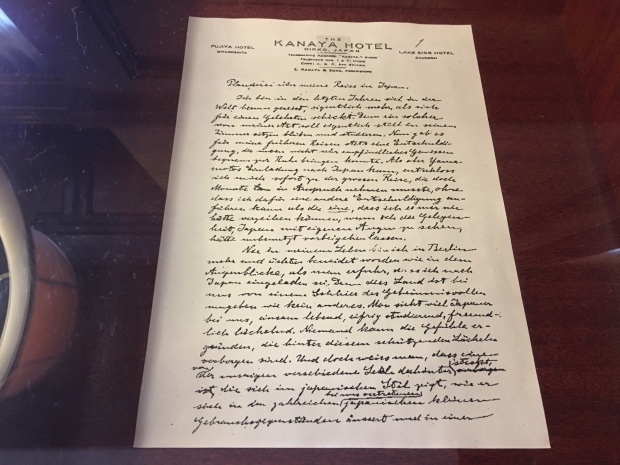 THE
KANAYA HOTEL
NIKKO, JAPAN
FUJIYA HOTEL
MIYANOSHITA
LAKE SIDE HOTEL
CHUZENJI
TELEGRAPHIC ADDRESS: "KANAYA," NIKKO
CODE: A. B. C. 5TH EDITION
KANAYA & SONS, PROPRIETORS
Plauderei über meine Reise in Japan.
Ich bin in den letzten Jahren viel in der
Welt herum gereist, eigentlich mehr als sich
für einen Gelehrten schickt. Denn ein solcher
von meiner Art soll eigentlich still in seinem
Zimmer sitzen bleiben und studieren. Nun gab es
für meine früheren Reisen stets eine Entschuldi-
gung, die mein nicht sehr empfindliches Gewissen
bequem zur Ruhe bringen konnte. Als aber Yama-
motos Einladung nach Japan kam, entschloss
ich mich sofort zu der grossen Reise, die doch
Monate lang in Anspruch nehmen musste, ohne
dass ich dafür eine andere Entschuldigung an-
führen kann als die eine, dass ich es mir nie
hätte verzeihen können, wenn ich die Gelegen-
heit, Japan mit eigenen Augen zu sehen,
hätte unbenutzt vorbeigehen lassen.
Nie in meinem Leben bin ich in Berlin
mehr und echter beneidet worden wie in dem
Augenblicke, als man erfuhr, dass ich nach
Japan eingeladen sei. Denn dies Land ist bei
uns von einem Schleier des Geheimnisvollen
umgeben wie kein anderes. Man sieht viel Japaner
bei uns, einsam lebend, eifrig studierend, freund-
lich lächelnd. Niemand kann die Gefühle er-
gründen, die hinter diesem schützenden Lächeln
verborgen sind. Und doch weiss man, dass eine
von der unsrigen verschiedene Seele dahinter steckt, verborgen
ist, die sich im japanischen Stil zeigt, wie er
sich in den zahlreichen bei uns vertretenen japanischen kleinen
Gebrauchsgegenständen äussert und in einer